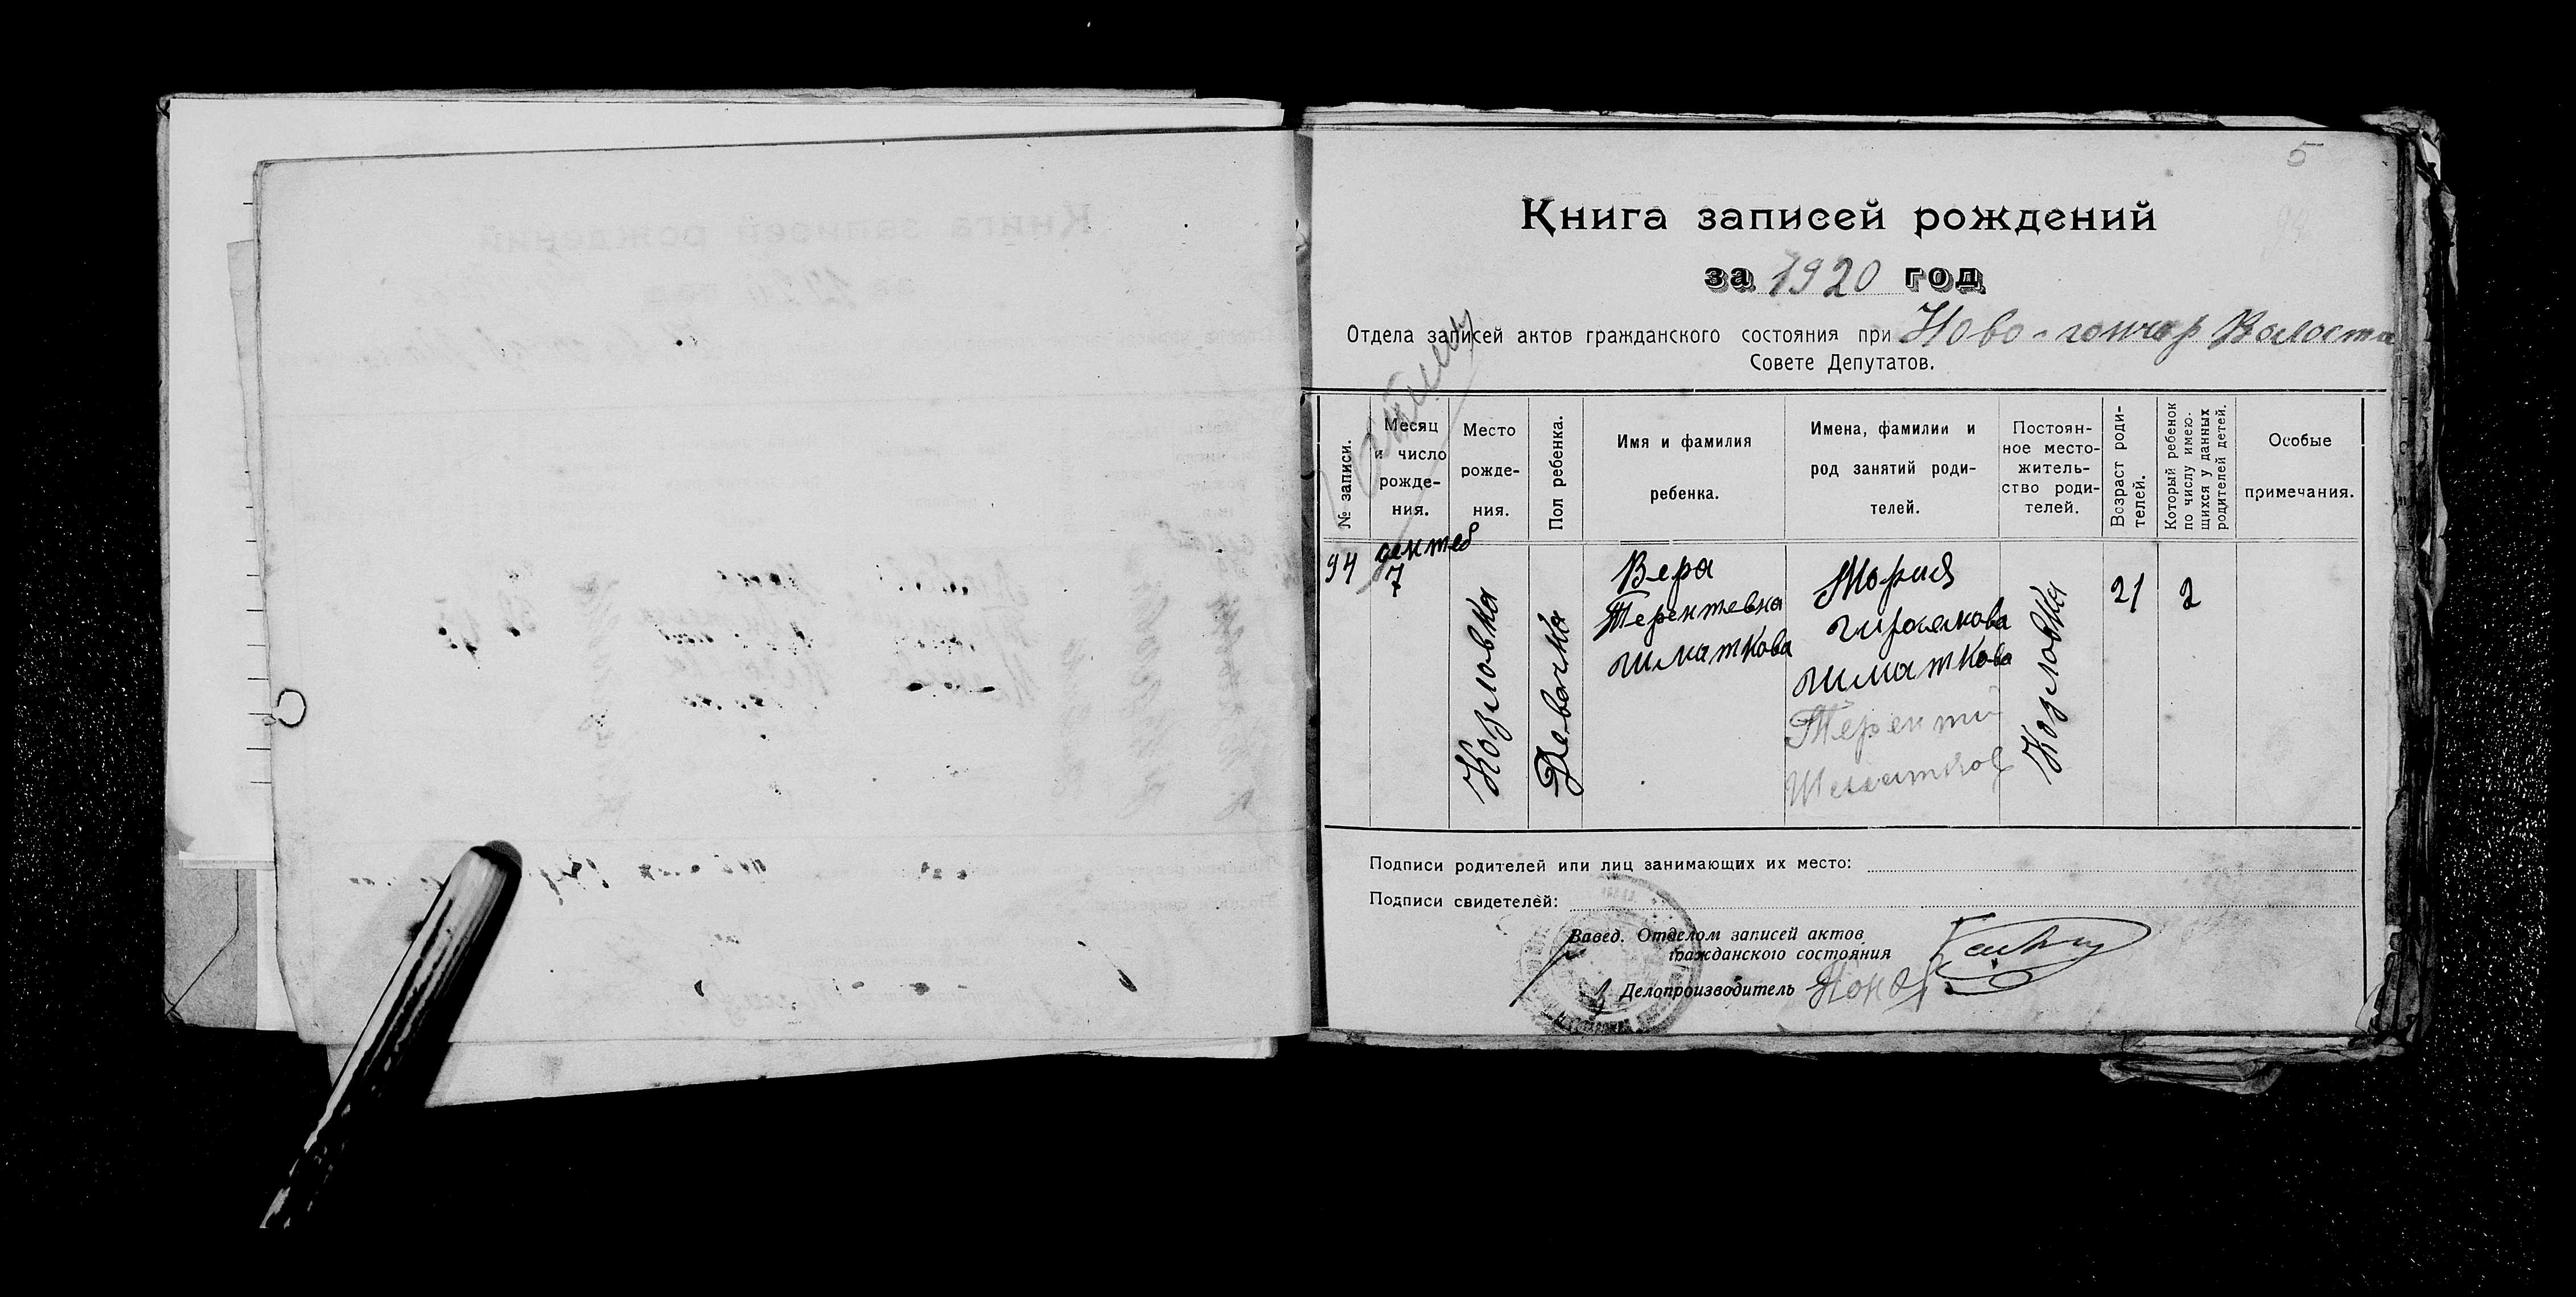 5
Книга записей рождений
за 1920 год
Отдела записей актов гражданского состояния при Ново-гончар Волостн
Совете Депутатов.
№ записи.
Месяц и число рожде- ния.
Место рожде- ния.
Пол ребенка.
Имя и фамилия ребенка.
Имена, фамилии и род занятий роди- телей.
Постоян- ное место- житель- ство роди- телей.
Возраст роди- телей.
Который ребенок по числу имею- щихся у данных родителей детей.
Особые примечания.
94
7
Козловка
Девочка
Вера
Терентевна
шматкова
Мария
шматкова
Терентий
Шматков
Козловка
21
2
Подписи родителей или лиц занимающих их место:
Подписи свидетелей:
Завед. Отделом записей актов
гражданского состояния
Делопроизводитель